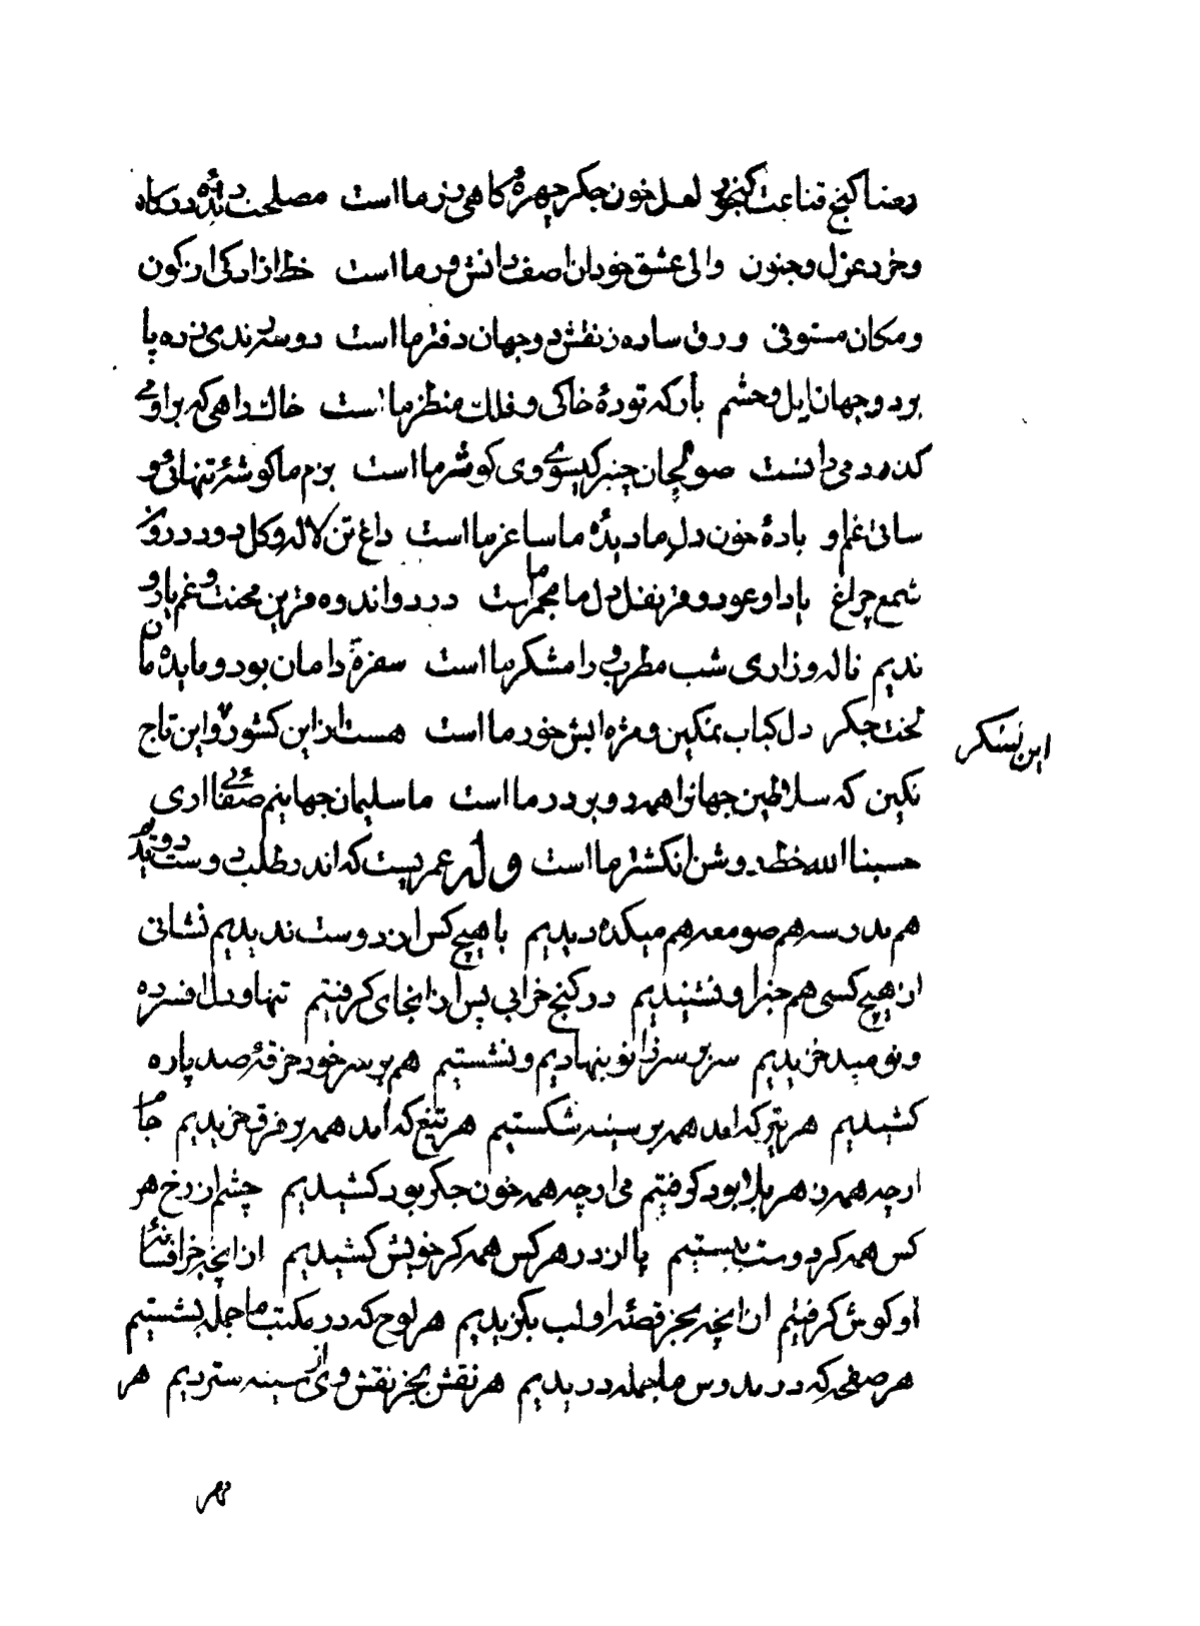 رضا کنج قناعت کنجور لعل خون جکر چهرهٔ کاهی زر ما است مصلحت دیده درکاه
وخرد عزل وجنون والی عشق خودان اصف دانش ور ما است خط ازادکی از کون
ومکان مستوفی ورق ساده ز نقش دو جهان دفتر ما است دوسه رندی زده پا
بر دو جهان ایل وحشم بارکه تودهٔ خاکی وفلک منظر ما است خاک راهی که براو می
کذرد می دانست صولجان چنبر کیسوی وی کوی سر ما است بزم ما کوشهٔ تنهائی و
ساقی غم و بادهٔ خون دل ما دیدهٔ ما ساغر ما است داغ تن لاله وکل دود درون
شمع چراغ یاد او عود وقرنفل دل ما مجمر ما است درد واندوه قرین محنت وغم یار و
ندیم ناله وزاری شب مطرب و رامشکر ما است سفرهٔ دامان بود ومایده مان
لخت جکر دل کباب نمکین ومژه ابش خور ما است هست از این کشور واین تاج
این لشکر
نکین که سلاطین جهانرا همه رو بر در ما است ما سلیمان جهانیم صفائی اری
حسبنا الله خط روشن انکشتر ما است وله عمریست که اندر طلب دوست دویدیم
هم مدرسه هم صومعه هم میکده دیدیم با هیچ کس از دوست ندیدیم نشانی
از هیچ کسی هم خبر او نشنیدیم در کنج خرابی پس از انجای کرفتیم تنها ودل افسرده
ونومید خزیدیم سر بر سر زانو بنهادیم ونشستیم هم بر سر خود خرقهٔ صد پاره
کشیدیم هر تیر که امد همه بر سینه شکستیم هر تیغ که امد همه بر فرق خریدیم جام
ارچه همه زهر بلا بود کرفتیم می ارچه همه خون جکر بود کشیدیم چشم از رخ هر
کس همه کر دوست ببستیم پا از در هر کس همه کر خویش کشیدیم از انچه جز افسانهٔ
او کوش کرفتیم از انچه بجز قصهٔ او لب بکزیدیم هر لوح که در مکتب ما جمله بشستیم
هر صفحی که در مدرس ما جمله دریدیم هر نقش بجز نقش وی از سینه ستردیم هر
مهر